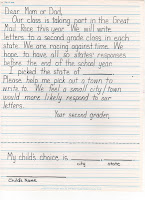 Dear Mom or Dad,
Our class is taking part in the Great
Mail Race this year. We will write
letters to a second grade class in each
state. We are racing against time. We
hope to have all 50 states' responses
before the end of the school year.
I picked the state of
Please help me pick out a town to
write to. We feel a small city/town
would more likely respond to our
letters.
Your second grader,
My child's choice is
city state
Child's Name